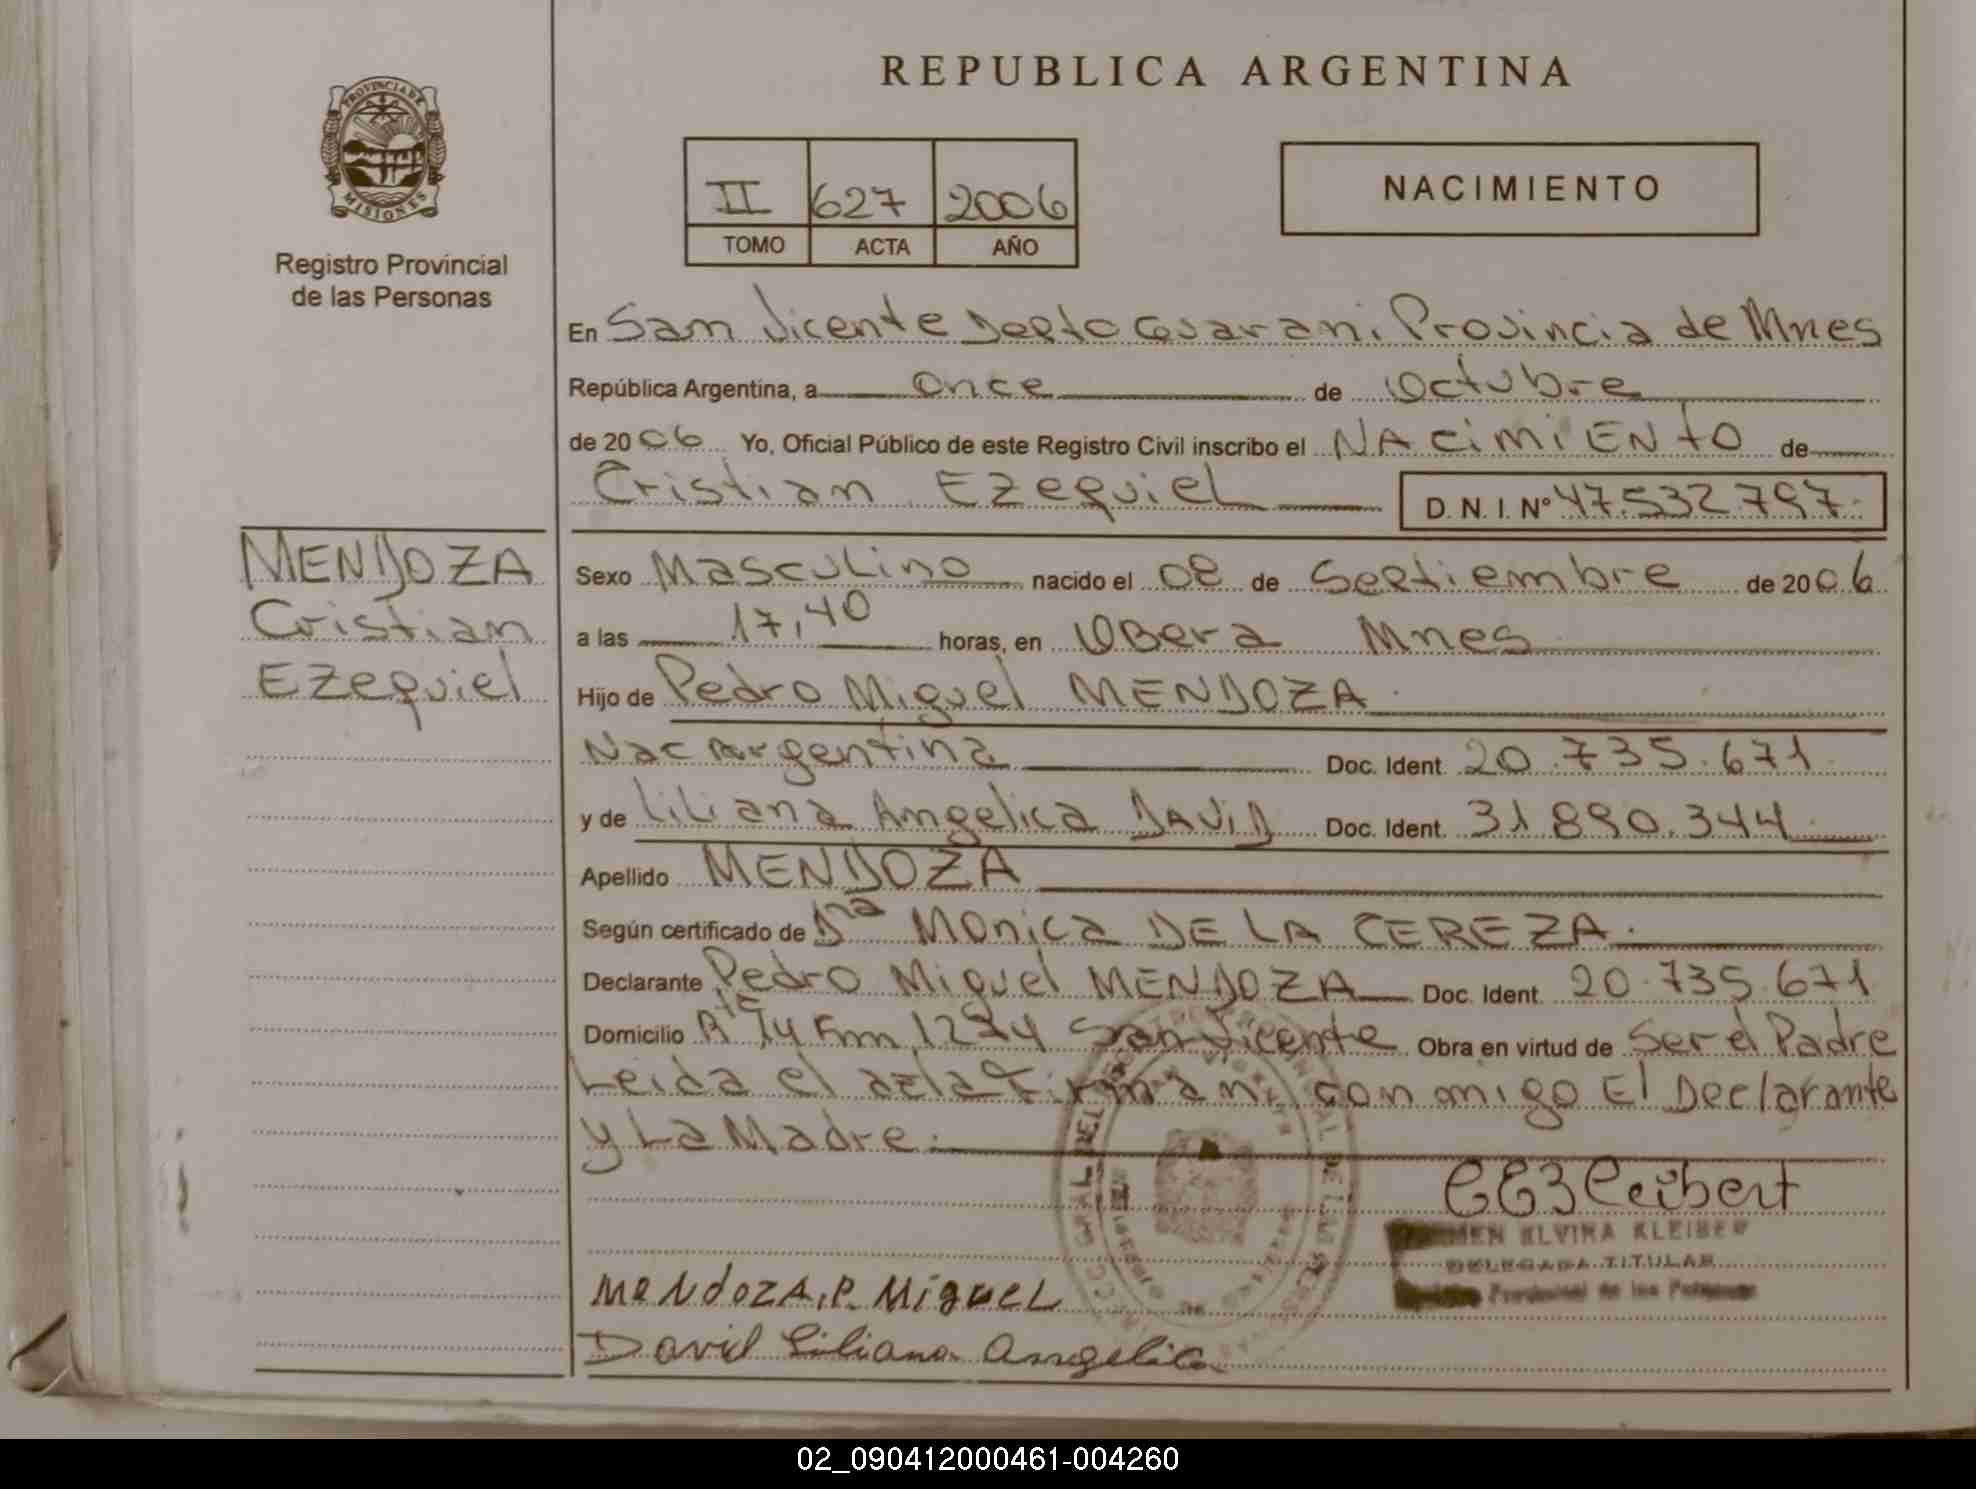 REPUBLICA ARGENTINA
PROVINCIA DE
MISIONES
Registro Provincial
de las Personas
II 627 2006
TOMO ACTA AÑO
NACIMIENTO
En San Vicente Depto Guarani Provincia de Mnes
República Argentina, a once de Octubre
de 2006 Yo, Oficial Público de este Registro Civil inscribo el NACIMIENTO de
Cristian Ezequiel D. N. I. Nº 47.532.797
MENDOZA
Cristian
Ezequiel
Sexo Masculino nacido el 08 de Septiembre de 2006
a las 17,40 horas, en Obera Mnes
Hijo de Pedro Miguel MENDOZA
Nac Argentina Doc. Ident. 20.735.671
y de Liliana Angelica DAVID Doc. Ident. 31.890.344
Apellido MENDOZA
Según certificado de Dra Monica DE LA CEREZA
Declarante Pedro Miguel MENDOZA Doc. Ident. 20.735.671
Domicilio Rta 14 Km 1274 San Vicente Obra en virtud de Ser el Padre
Leida el acta firman conmigo El Declarante
y La Madre.
KLEIBER
DELEGADA TITULAR
Provincial de las Personas
MENDOZA, P. MIGUEL
David Liliana Angelica
02_090412000461-004260